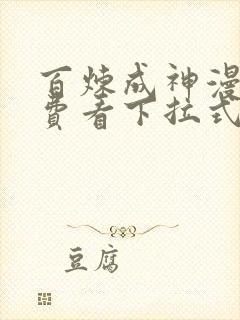 百炼成神漫
费看下拉式
豆腐